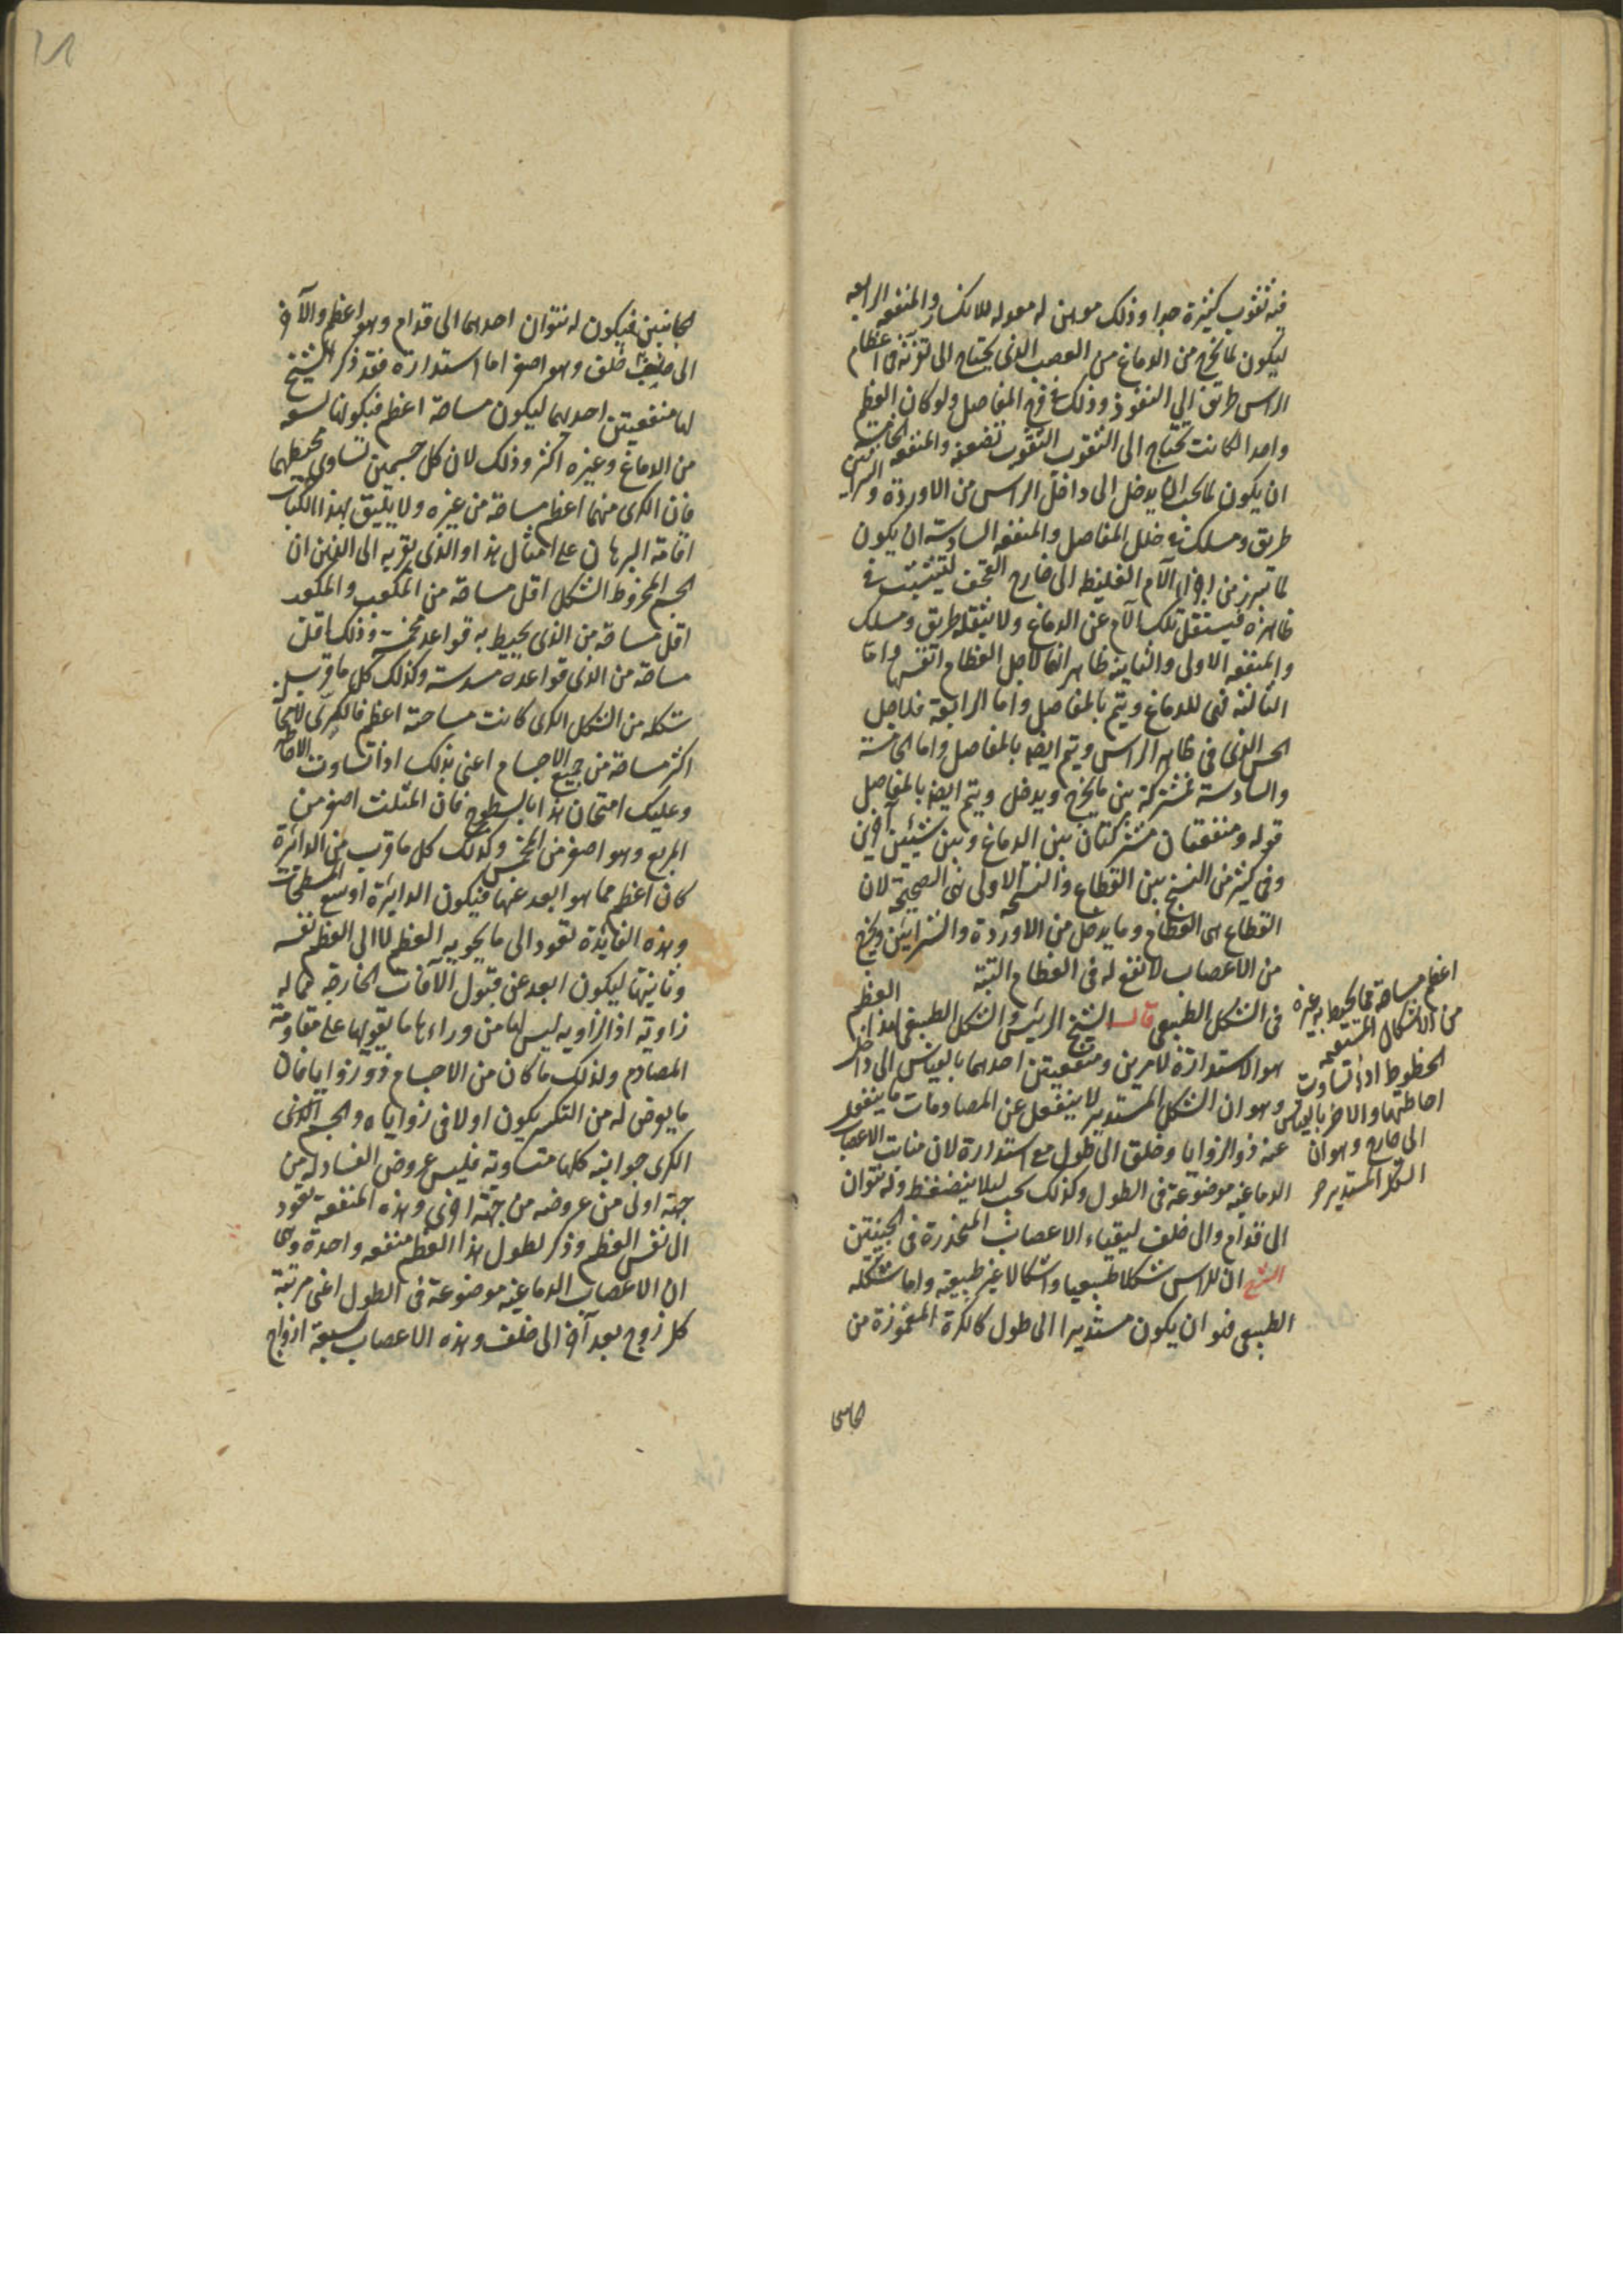 فيه ثقوب كثيرة جدا وذلك موهن له معد له للانكسار والمنفعة الرابعة
ليكون لما يخرج من الدماغ من العصب الذى يحتاج الى تفرقه فى اعظام
الراس طريق الى النفوذ وذلك فى المفاصل ولو كان العظم
واحدا لكانت تحتاج الى الثقوب الثقوب تضعفه والمنفعة الخامسة
ان يكون لما يحب ان يدخل الى داخل الراس من الاوردة والشرايين
طريق ومسلك فى خلل المفاصل والمنفعة السادسة ان يكون
لما تبرز من اجزاء الام الغليظ الى خارج القحف لتتشبث فى
ظاهره فيستقل تلك الام عن الدماغ ولا تثقله طريق ومسلك
والمنفعة الاولى والثانية ظاهر انها لاجل العظام انفسها واما
الثالثة فهى للدماغ ويتم بالمفاصل واما الرابعة فلاجل
الحس الذى فى ظاهر الراس ويتم ايضا بالمفاصل واما الخامسة
والسادسة فمشتركة بين ما يخرج ويدخل ويتم ايضا بالمفاصل
قوله ومنفعتان مشتركتان بين الدماغ وبين شيئين آخرين
وفى كثير من النسخ بين القطاع والنسخة الاولى هى الصحيحة لان
القطاع هى العظام وما يدخل من الاوردة والشرايين ويخرج
من الاعصاب لا نفع له فى العظام البتة
فى الشكل الطبيعى قال الشيخ الرئيس والشكل الطبيعى لهذا العظم
هو الاستدارة لامرين ومنفعتين احدهما بالقياس الى داخل
وهو ان الشكل المستدير لا ينفعل عن المصادمات ما ينفعل
عنه ذو الزوايا وخلق الى طول مع استدارة لان منابت الاعصاب
الدماغية موضوعة فى الطول وكذلك يجب ليلا ينضغط وله نتوان
الى قدام والى خلف ليقياء الاعصاب المنحدرة فى الجنبتين
الشرح ان للراس شكلا طبيعيا واشكالا غير طبيعية واما شكله
الطبيعى فهو ان يكون مستديرا الى طول كالكرة المغموزة من
اعظم مساحة مما يحيط به غيره
من الاشكال المستقيمة
الخطوط اذا تساوت
احاطتها والاخر بالقياس
الى خارج وهو ان
الشكل المستدير
الجانبين فيكون له نتوان احدهما الى قدام وهو اعظم والآخر
الى خلف وهو اصغر اما استدارة فقد ذكر الشيخ
لها منفعتين احديهما ليكون مساحة اعظم فيكون لما تسعه
من الدماغ وغيره اكثر وذلك لان كل جسمين تساوى محيطهما
فان الكرى منهما اعظم مساحة من غيره ولا يليق بهذا الكتاب
اقامة البرهان على امثال هذا والذى يقربه الى الذهن ان
الجسم المخروط الشكل اقل مساحة من المكعب والمكعب
اقل مساحة من الذى يحيط به قواعد مخمسة وذلك اقل
مساحة من الذى قواعده مسدسة وكذلك كل ما قرب
شكله من الشكل الكرى كانت مساحة اعظم فالكرى لا محالة
اكثر مساحة من جميع الاجسام اعنى بذلك اذا تساوت الاحاطة
وعليك امتحان هذا بالسطوح فان المثلث اصغر من
المربع وهو اصغر من المخمس وكذلك كل ما قرب من الدائرة
كان اعظم مما هو ابعد عنها فيكون الدايرة اوسع المسطحات
وهذه الفايدة تعود الى ما يحويه العظم لا الى العظم نفسه
وثانيتها ليكون ابعد عن قبول الآفات الخارجة مما له
زاوية اذ الزاوية ليس لها من وراءها ما يقويها على مقاومة
المصادم ولذلك ما كان من الاجسام ذو زوايا فان
ما يعرض له من التكسر يكون اولا فى زواياه والجسم الذى
الكرى جوانبه كلها متساوية فليس عروض الفساد له من
جهة اولى من عروضه من جهة اخرى وهذه المنفعة تعود
الى نفس العظم وذكر لطول هذا العظم منفعة واحدة وهى
ان الاعصاب الدماغية موضوعة فى الطول اعنى مرتبة
كل زوج بعد آخر الى خلف وهذه الاعصاب سبعة ازواج